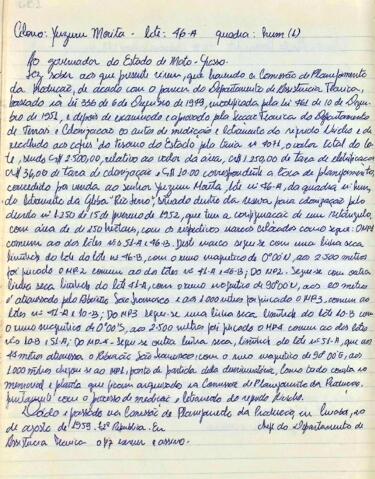 Colono: Yuzuru Morita - lote: 46-A quadra: hum (1)
Ao governador do Estado de Mato-Grosso.
Faz saber aos que presente virem, que havendo a Comissão de Planejamento
da Produção, de acôrdo com o parecer do Departamento de Assistência Técnica,
baseado na lei 336 de 6 de Dezembro de 1949, modificada pela lei 461 de 10 de Dezem-
bro de 1951, e depois de examinado e aprovado pela Secção Técnica do Departamento
de Terras e Colonização os autos de medição e loteamento do referido
recolhido aos cofres do tesouro do Estado pelo o valor total do lo-
te, sendo Cr$ 2.500,00, relativo ao valor da área, Cr$ 1.250,00 de taxa de
Cr$ 36,00 de taxa de colonização e Cr$ 10.00 correspondente a taxa de planejamento,
concedido por venda ao senhor Yuzuru Morita, lote nº 46-A, da quadra nº hum,
do loteamento da Gleba "Rio Ferro", situado dentro da reserva para colonização pelo
decreto nº 1.250 de 15 de janeiro de 1952, que tem a configuração de um retângulo,
com área de 250 hectares, com os respectivos marcos colocados como segue: O MP1
comum ao dos lotes nºs 51-A e 46-B. Deste marco segue-se com uma linha seca
limítrofe do lote do lote nº 46-B, com o rumo magnético de 0º00'N, aos 2.500 metros
foi fincado o MP2 comum ao do lotes nº 41-A e 46-B; Do MP2. Segue-se com outra
linha seca limítrofe do lote 41-A, com o rumo magnético de aos metros
é atravessado pelo Ribeirão São Francisco e aos 1.000 metros foi fincado o MP3, comum ao
lotes nº 41-A e 10-B; Do MP3 segue-se uma linha seca limítrofe do lote 10-B com
o rumo magnético de 0º00'S, aos 2.500 metros foi fincado o MP4 comum ao dos lotes
nºs 10-B e 51-A; Do MP4 - Segue-se outra linha seca, limítrofe do lote nº 51-A, que aos
metros atravessa o Ribeirão São Francisco, com o rumo magnético de 90º00'E, aos
1.000 metros chegou-se ao MP1, ponto de partida desta discriminativa, como tudo consta no
memorial e planta que ficam arquivados na Comissão de Planejamento da Produção,
juntamente com o processo de medição e loteamento do referido
Dado e passado na Comissão de Planejamento da Produção, em Cuiabá, ao
de agôsto de 1959. República. Eu chefe do Departamento de
Assistência Técnica o fiz escrever e assino.